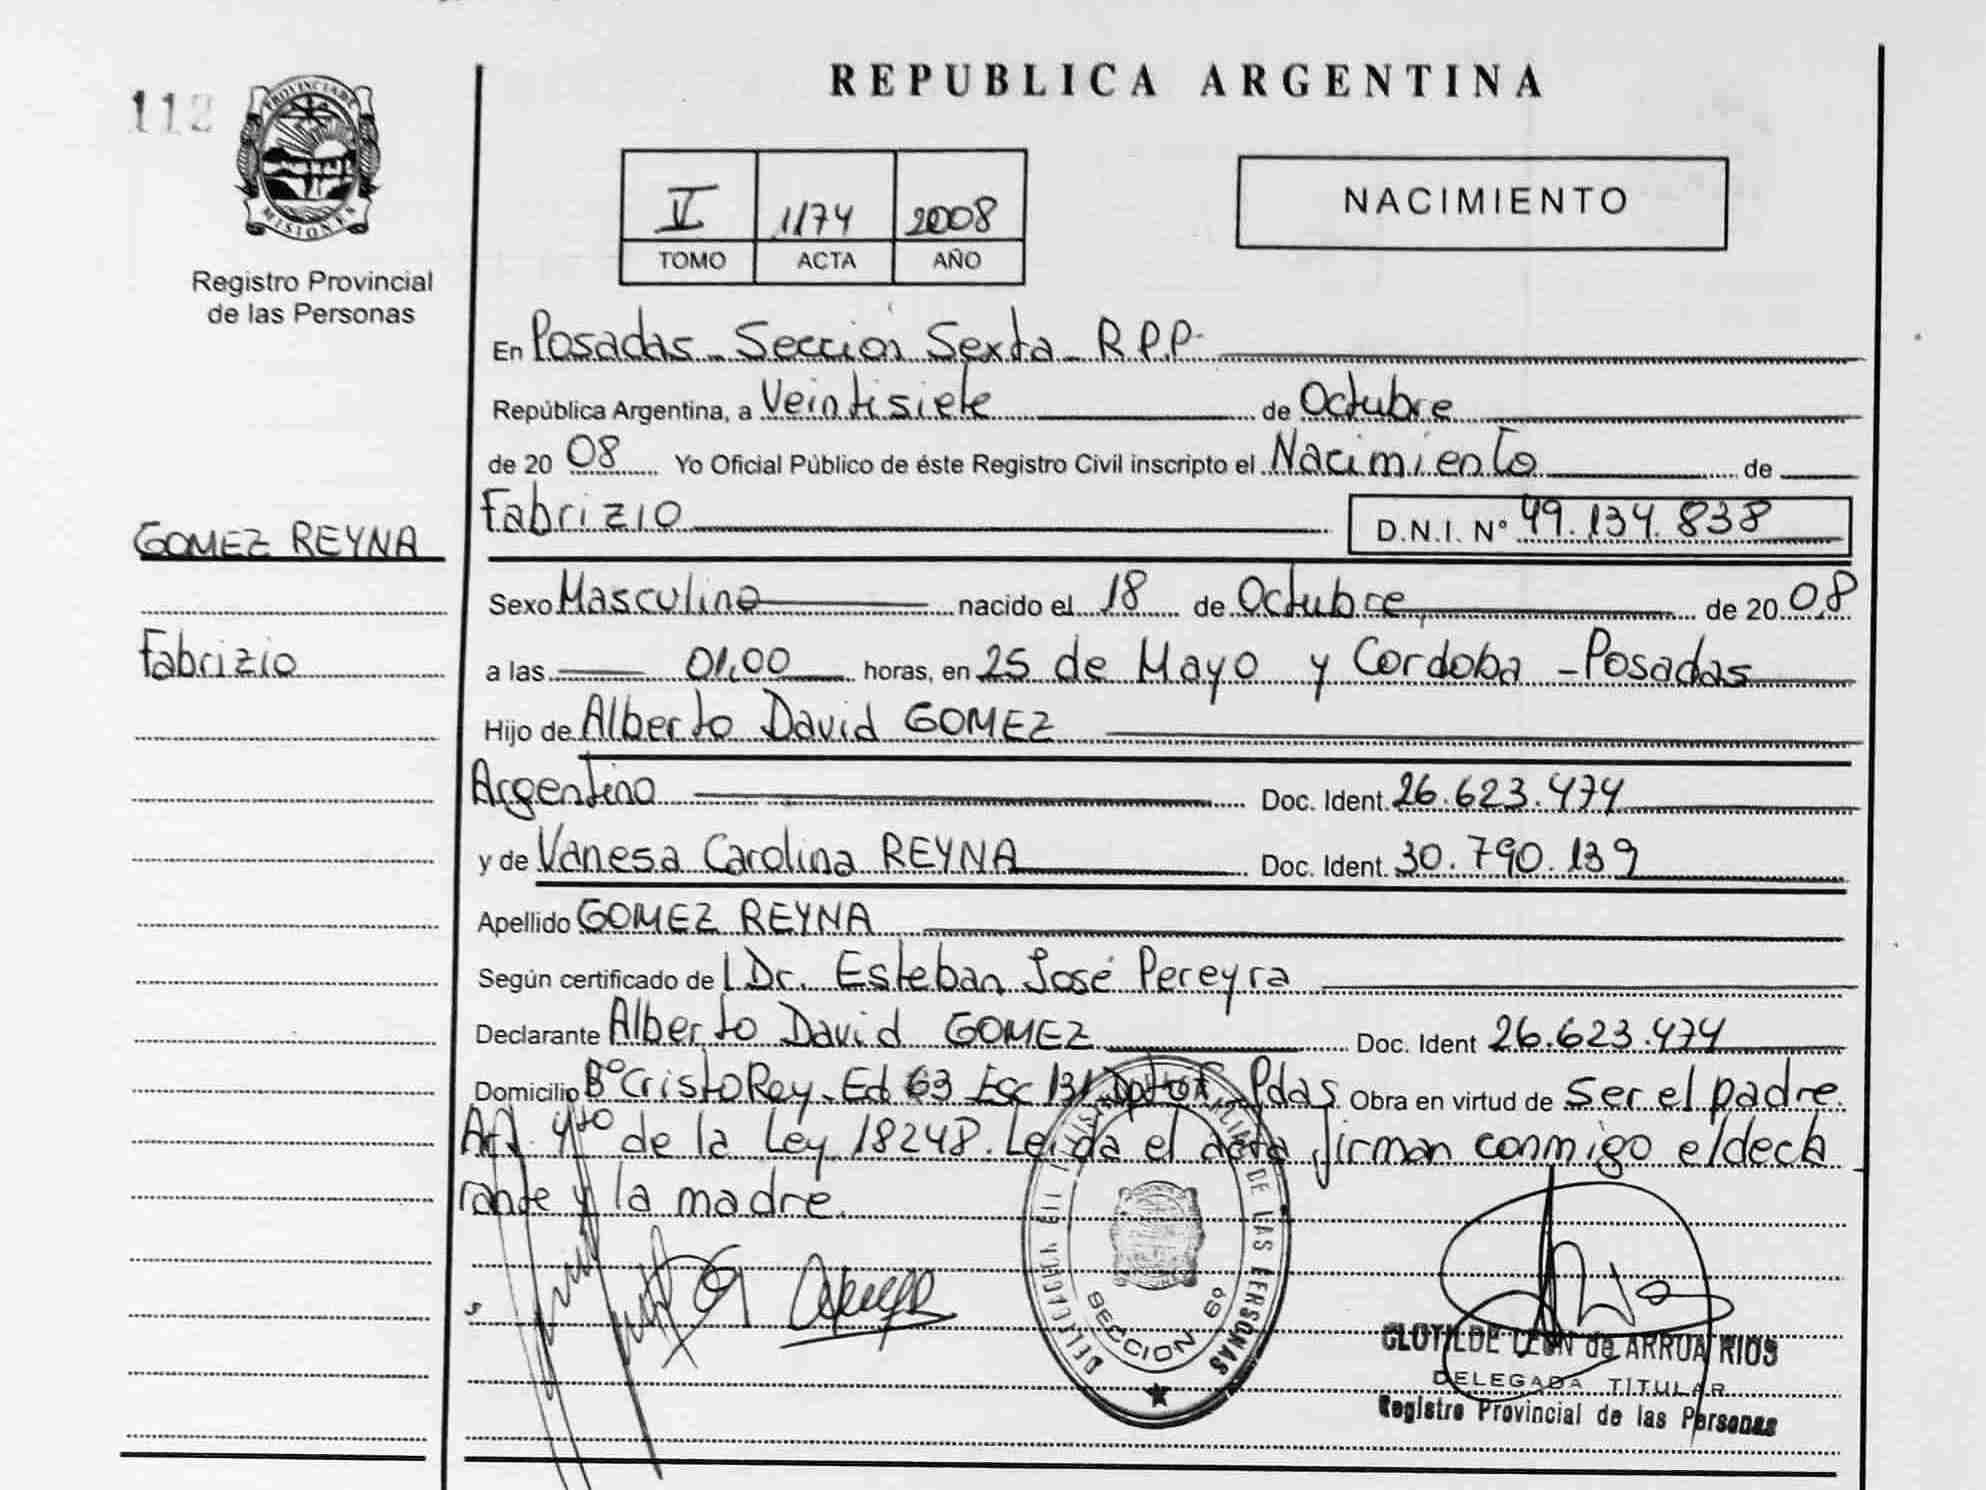 REPUBLICA ARGENTINA
112
PROVINCIA DE
MISIONES
Registro Provincial
de las Personas
V 1174 2008
TOMO ACTA AÑO
NACIMIENTO
En Posadas - Sección Sexta - R.P.P.
República Argentina, a Veintisiete de Octubre
de 20 08 Yo Oficial Público de éste Registro Civil inscripto el Nacimiento de
Fabrizio D.N.I. Nº 49.134.838
GOMEZ REYNA
Fabrizio
Sexo Masculino nacido el 18 de Octubre de 20 08
a las 01,00 horas, en 25 de Mayo y Cordoba - Posadas
Hijo de Alberto David GOMEZ
Argentino Doc. Ident. 26.623.474
y de Vanesa Carolina REYNA Doc. Ident. 30.790.139
Apellido GOMEZ REYNA
Según certificado de l Dr. Esteban José Pereyra
Declarante Alberto David GOMEZ Doc. Ident 26.623.474
Domicilio Bº Cristo Rey - Ed 63 Esc 131 Pdas Obra en virtud de ser el padre.
Art. 4to de la Ley 18248. Leida el acta firman conmigo el decla
rante y la madre.
DE LAS PERSONAS
SECCION 6º
CLOTILDE LEON de ARRUA RIOS
DELEGADA TITULAR
Registro Provincial de las Personas